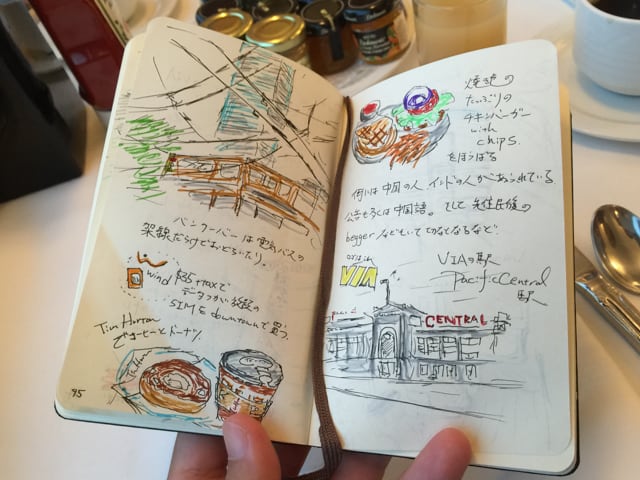 バンクーバーは電気バスの
架線だらけでおどろいたり。
wind $35+taxで
データつが後続の
SIMをdowntownで買う。
Tim Horton
でコーヒーとドーナツ
95
焼き色の
たっぷりの
チキンバーガー
with
chips.
をほうばる
街は中国の人、インドの人があふれている
公告も多くは中国語。そして先住民族の
beggerなどもいて切なくなるなど。
VIA
VIAの駅
Pacific Central
駅
CENTRAL